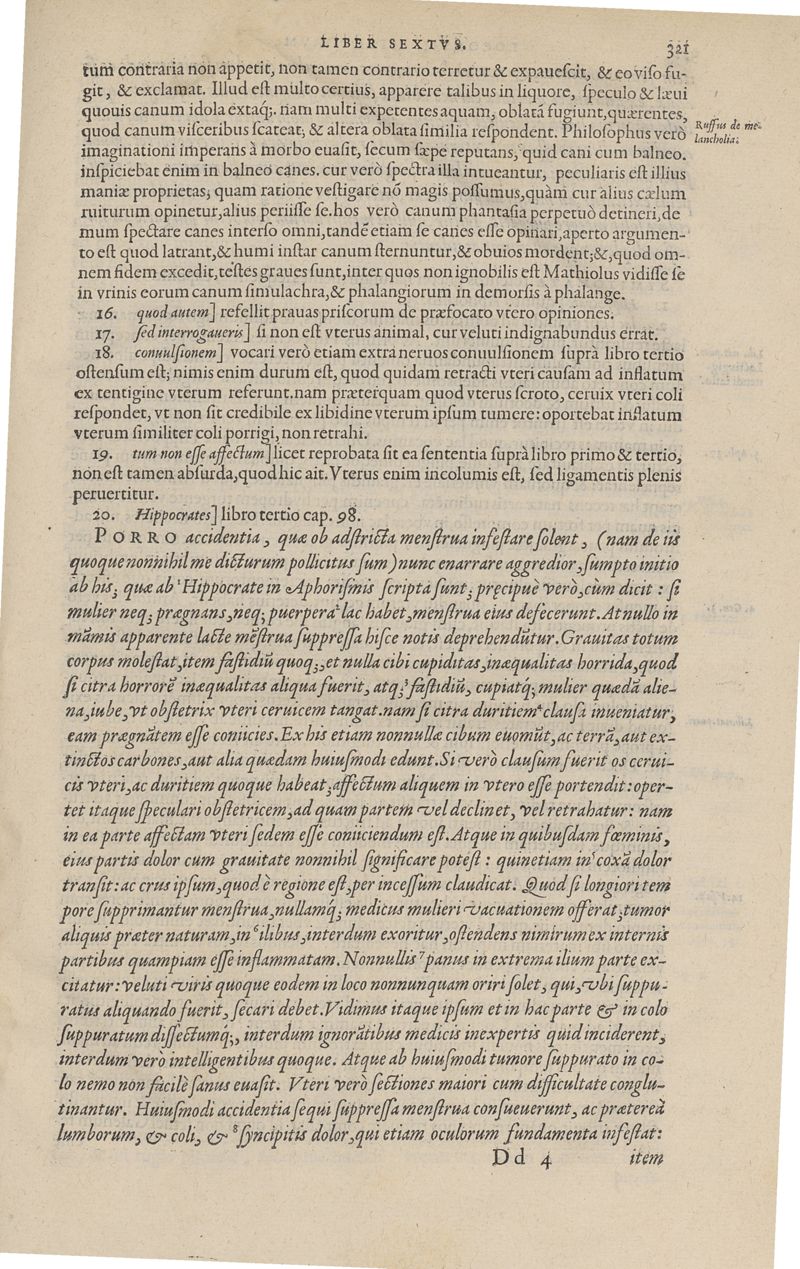 LIBER SEXTVS. 321
tum contraria non appetit, non tamen contrario terretur & expaueſcit, & eo viſo fu-
git, & exclamat. Illud eſt multo certius, apparere talibus in liquore, ſpeculo & læui
quouis canum idola extaq;. nam multi expetentes aquam, oblatā fugiunt, quærentes,
quod canum viſceribus ſcateat; & altera oblata ſimilia reſpondent. Philoſophus verò
Ruffus de me-
lancholia.
imaginationi imperans à morbo euaſit, ſecum ſæpe reputans, quid cani cum balneo.
inſpiciebat enim in balneo canes. cur verò ſpectra illa intueantur, peculiaris eſt illius
maniæ proprietas; quam ratione veſtigare nō magis poſſumus, quàm cur alius cælum
ruiturum opinetur, alius periiſſe ſe. hos verò canum phantaſia perpetuò detineri, de
mum ſpectare canes interſo omni, tandē etiam ſe canes eſſe opinari, aperto argumen-
to eſt quod latrant, & humi inſtar canum ſternuntur, & obuios mordent; &, quod om-
nem fidem excedit, teſtes graues ſunt, inter quos non ignobilis eſt Mathiolus vidiſſe ſe
in vrinis eorum canum ſimulachra, & phalangiorum in demorſis à phalange.
16. quod autem] refellit prauas priſcorum de præfocato vtero opiniones.
17. ſed interrogaueris] ſi non eſt vterus animal, cur veluti indignabundus errat.
18. conuulſionem] vocari verò etiam extra neruos conuulſionem ſuprà libro tertio
oſtenſum eſt; nimis enim durum eſt, quod quidam retracti vteri cauſam ad inflatum
ex tentigine vterum referunt. nam præterquam quod vterus ſcroto, ceruix vteri coli
reſpondet, vt non ſit credibile ex libidine vterum ipſum tumere: oportebat inflatum
vterum ſimiliter coli porrigi, non retrahi.
19. tum non eſſe affectum] licet reprobata ſit ea ſententia ſuprà libro primo & tertio,
non eſt tamen abſurda, quod hic ait. Vterus enim incolumis eſt, ſed ligamentis plenis
peruertitur.
20. Hippocrates] libro tertio cap. 98.
PORRO accidentia, quæ ob adſtricta menſtrua infeſtare ſolent, (nam de iis
quoque nonnihil me dicturum pollicitus ſum) nunc enarrare aggredior, ſumpto initio
ab his, quæ ab ¹Hippocrate in Aphoriſmis ſcripta ſunt; pręcipuè verò, cùm dicit: ſi
mulier neq; prægnans, neq; puerpera ²lac habet, menſtrua eius defecerunt. At nullo in
māmis apparente lacte mēſtrua ſuppreſſa hiſce notis deprehendūtur. Grauitas totum
corpus moleſtat, item faſtidiū quoq;, et nulla cibi cupiditas, inæqualitas horrida, quod
ſi citra horrorē inæqualitas aliqua fuerit, atq; ³faſtidiū, cupiatq́; mulier quædā alie-
na, iube, vt obſtetrix vteri ceruicem tangat. nam ſi citra duritiem ⁴clauſa inueniatur,
eam prægnātem eſſe coniicies. Ex his etiam nonnullæ cibum euomūt, ac terrā, aut ex-
tinctos carbones, aut alia quædam huiuſmodi edunt. Si verò clauſum fuerit os cerui-
cis vteri, ac duritiem quoque habeat, affectum aliquem in vtero eſſe portendit: opor-
tet itaque ſpeculari obſtetricem, ad quam partem vel declinet, vel retrahatur: nam
in ea parte affectam vteri ſedem eſſe coniiciendum eſt. Atque in quibuſdam fœminis,
eius partis dolor cum grauitate nonnihil ſignificare poteſt: quinetiam in ⁵coxā dolor
tranſit: ac crus ipſum, quod è regione eſt, per inceſſum claudicat. Quod ſi longiori tem
pore ſupprimantur menſtrua, nullamq́; medicus mulieri vacuationem offerat, tumor
aliquis præter naturam, in ⁶ilibus, interdum exoritur, oſtendens nimirum ex internis
partibus quampiam eſſe inflammatam. Nonnullis ⁷panus in extrema ilium parte ex-
citatur: veluti viris quoque eodem in loco nonnunquam oriri ſolet, qui, vbi ſuppu-
ratus aliquando fuerit, ſecari debet. Vidimus itaque ipſum et in hac parte & in colo
ſuppuratum diſſectumq́;, interdum ignorātibus medicis inexpertis quid inciderent,
interdum verò intelligentibus quoque. Atque ab huiuſmodi tumore ſuppurato in co-
lo nemo non facilè ſanus euaſit. Vteri verò ſectiones maiori cum difficultate conglu-
tinantur. Huiuſmodi accidentia ſequi ſuppreſſa menſtrua conſueuerunt, ac præterea
lumborum, & coli, & ⁸ſyncipitis dolor, qui etiam oculorum fundamenta infeſtat:
Dd 4 item